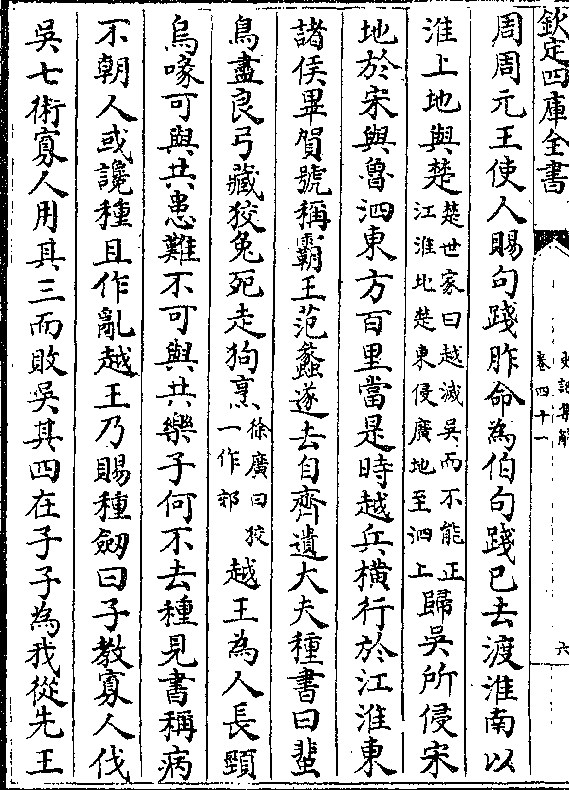 欽定四庫全書
史記集解
卷四十一
六
周周元王使人賜句踐胙命為伯句踐已去渡淮南以
淮上地與楚楚世家曰越滅吳而不能正江淮北楚東侵廣地至泗上歸吳所侵宋
地於宋與魯泗東方百里當是時越兵橫行於江淮東
諸侯畢賀號稱霸王范蠡遂去自齊遺大夫種書曰蜚
鳥盡良弓藏狡兔死走狗烹徐廣曰狡一作郊越王為人長頸
烏喙可與共患難不可與共樂子何不去種見書稱病
不朝人或讒種且作亂越王乃賜種劒曰子教寡人伐
吳七術寡人用其三而敗吳其四在子子為我從先王